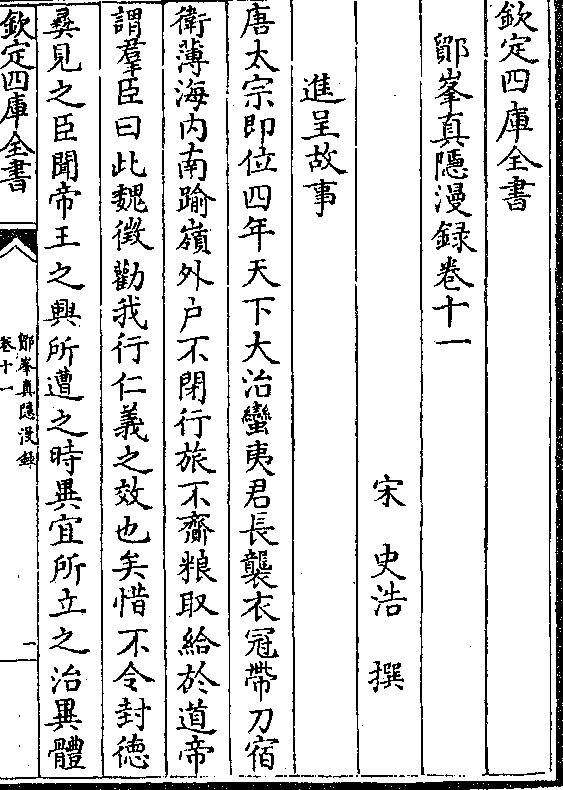 欽定四庫全書
鄮峯真隱漫録卷十一
宋 史浩 撰
進呈故事
唐太宗即位四年天下大治蠻夷君長襲衣冠帶刀宿
衛薄海内南踰嶺外户不閉行旅不齎粮取給於道帝
謂羣臣曰此魏徵勸我行仁義之效也矣惜不令封徳
彛見之臣聞帝王之興所遭之時異宜所立之治異體
欽定四庫全書
鄮峯真隱漫録
卷十一
一